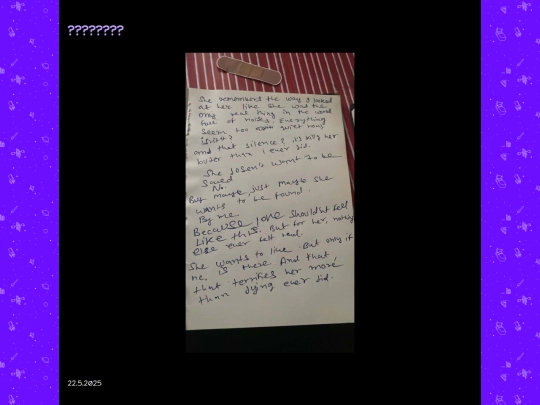 ????????
She remembers the way I looked
at her like she was the
only real thing in the world
full of noises. Everything
seems too quiet now
isn't it?
and that silence? its killing her
louder than I ever did.
She dosen't want to be
Saved
No.
But maybe, just maybe she
wants to be found.
By me.
Because love shouldn't feel
like this. But for her, nothing
else ever felt real.
She wants to live. But only if
me, is there. And that,
that terrifies her more
than dying ever did.
22.5.2025